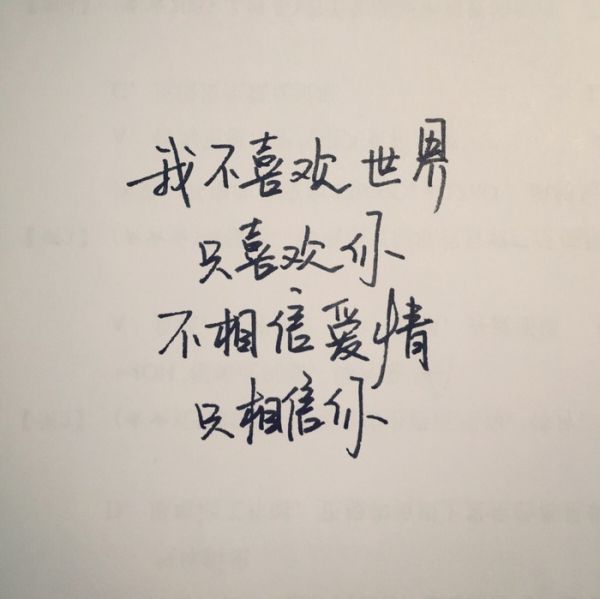 我不喜欢世界
只喜欢你
不相信爱情
只相信你